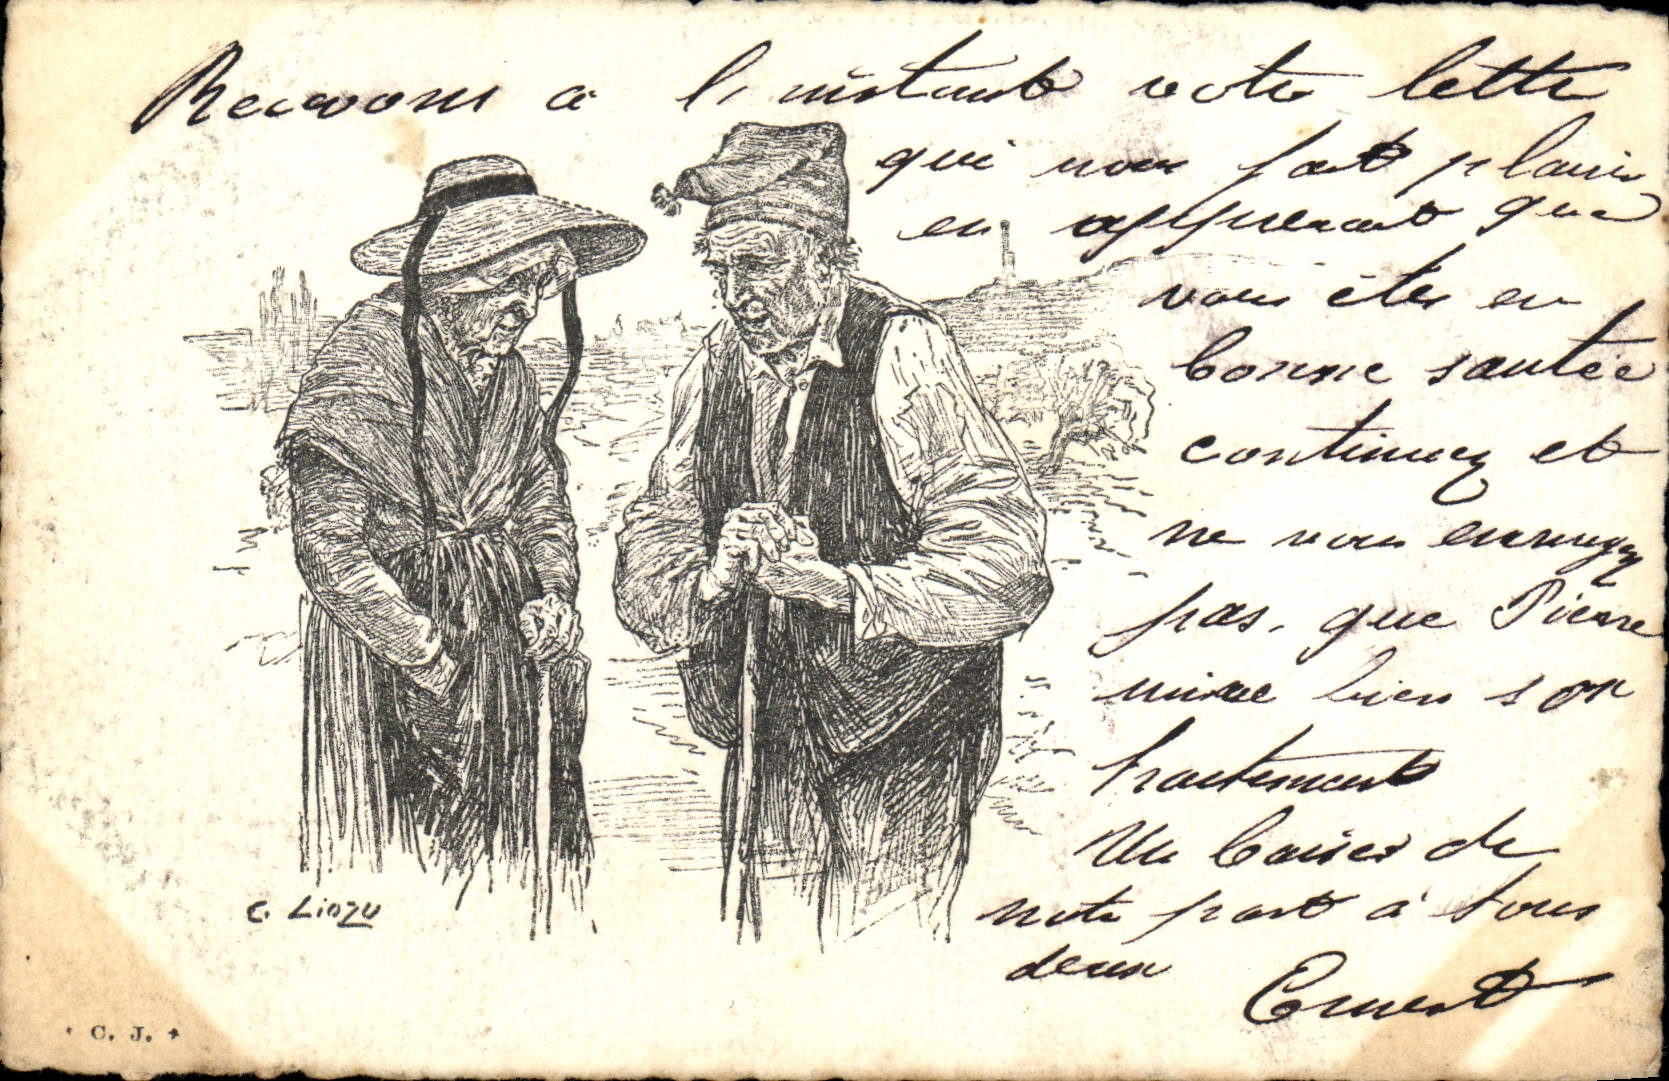 Recevons à l'instant votre lettre
qui nous fait plaisir
en apprenant que
vous êtes en
bonne santée
continuez et
ne vous ennuyez
pas, que Pierre
suive bien son
traitement
Un baiser de
notre part à tous
deux
Ernest
C. Liozu
* C. J. *